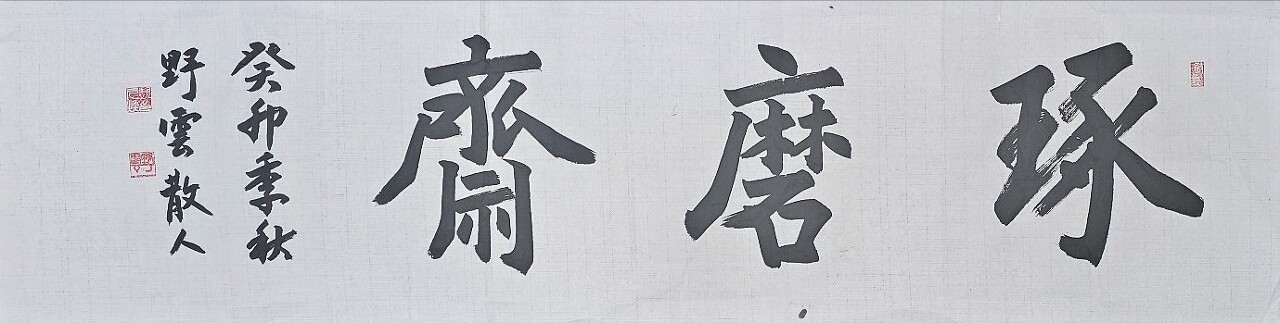 琢磨齋
癸卯季秋
野雲散人